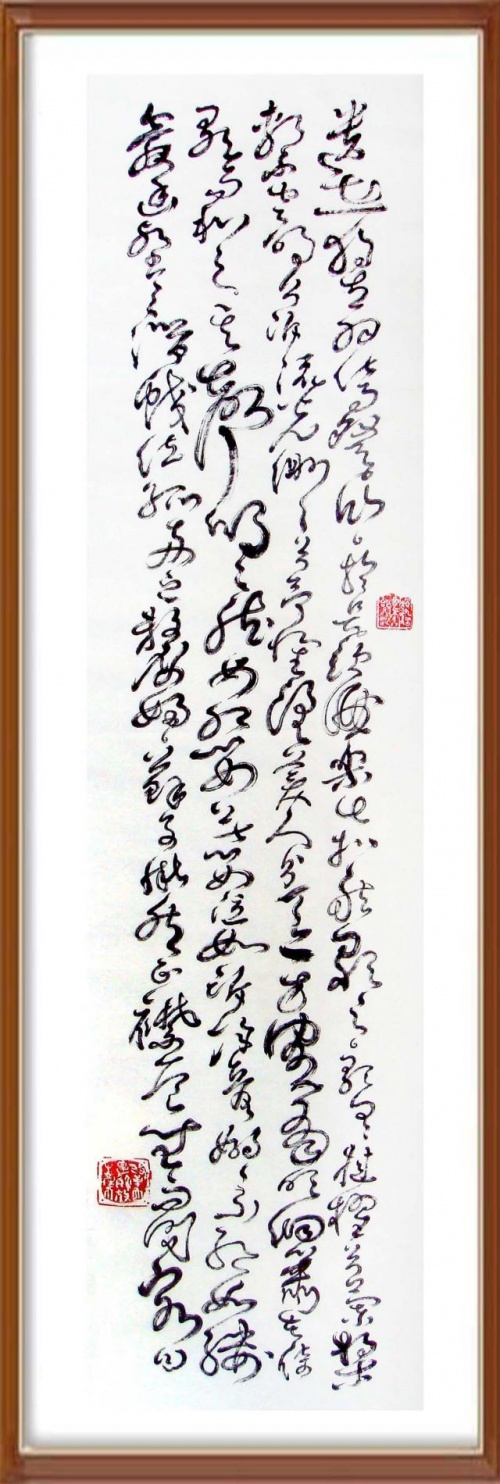 遺世獨立羽化而登仙於是飲酒樂甚扣舷而歌之歌曰桂棹兮蘭槳
擊空明兮泝流光渺渺兮予懷望美人兮天一方客有吹洞簫者倚
歌而和之其聲嗚嗚然如怨如慕如泣如訴餘音嫋嫋不絕如縷
舞幽壑之潛蛟泣孤舟之嫠婦蘇子愀然正襟危坐而問客曰